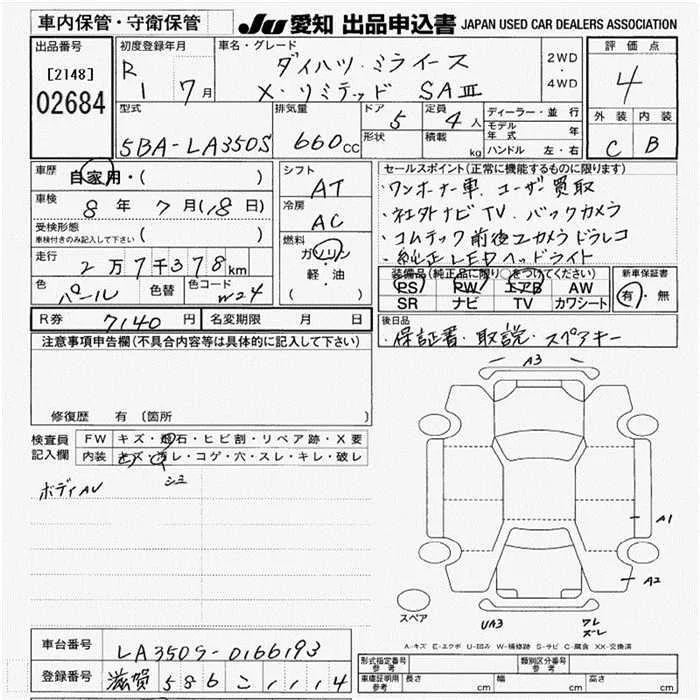 車内保管・守衛保管
JU 愛知 出品申込書 JAPAN USED CAR DEALERS ASSOCIATION
出品番号
[2148]
02684
初度登録年月
R1 7月
車名・グレード
ダイハツ・ミライース
X・リミテッド SAⅢ
2WD
・
4WD
評価点
4
外装 内装
C B
型式
5BA-LA350S
排気量
660cc
ドア 5
形状
定員 4人
積載 kg
ディーラー・並行
モデル年式 年
ハンドル 左・右
車歴 自家用・( )
車検 8年 7月(18日)
受検形態
車検付きのみ記入して下さい ( )
走行 2万7千378km
色 パール 色替 色コード W24
シフト
AT
冷房
AC
燃料
ガソリン
軽・油
( )
セールスポイント(正常に機能するものに限ります)
・ワンオーナー車.ユーザー買取
・社外ナビTV.バックカメラ
・コムテック前後2カメラドラレコ
・純正LEDヘッドライト
装備品(純正品に限り○をつけてください)
PS PW エアB AW
SR ナビ TV カワシート
新車保証書
有・無
R券 7140円 名変期限 月 日
後日品
・保証書・取説・スペアキー
注意事項申告欄(不具合内容等は具体的に記入して下さい)
修復歴 有 〔箇所
検査員
記入欄
FW キズ・飛石・ヒビ割・リペア跡・X要
内装 キズ・汚レ・コゲ・穴・スレ・キレ・破レ
ショ
ボディAU
A3
A1
A2
UA3
ワレ
ズレ
スペア
A-キズ E-エクボ U-凹み W-補修跡 S-サビ C-腐食 XX-交換済
車台番号 LA350S-0166193
登録番号 滋賀 586 こ 1114
形式指定番号
参考
類別区分番号
参考
車庫証明用
参考
長さ cm 幅 cm 高さ cm